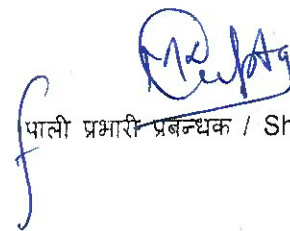 पाली प्रभारी प्रबन्धक / Sh